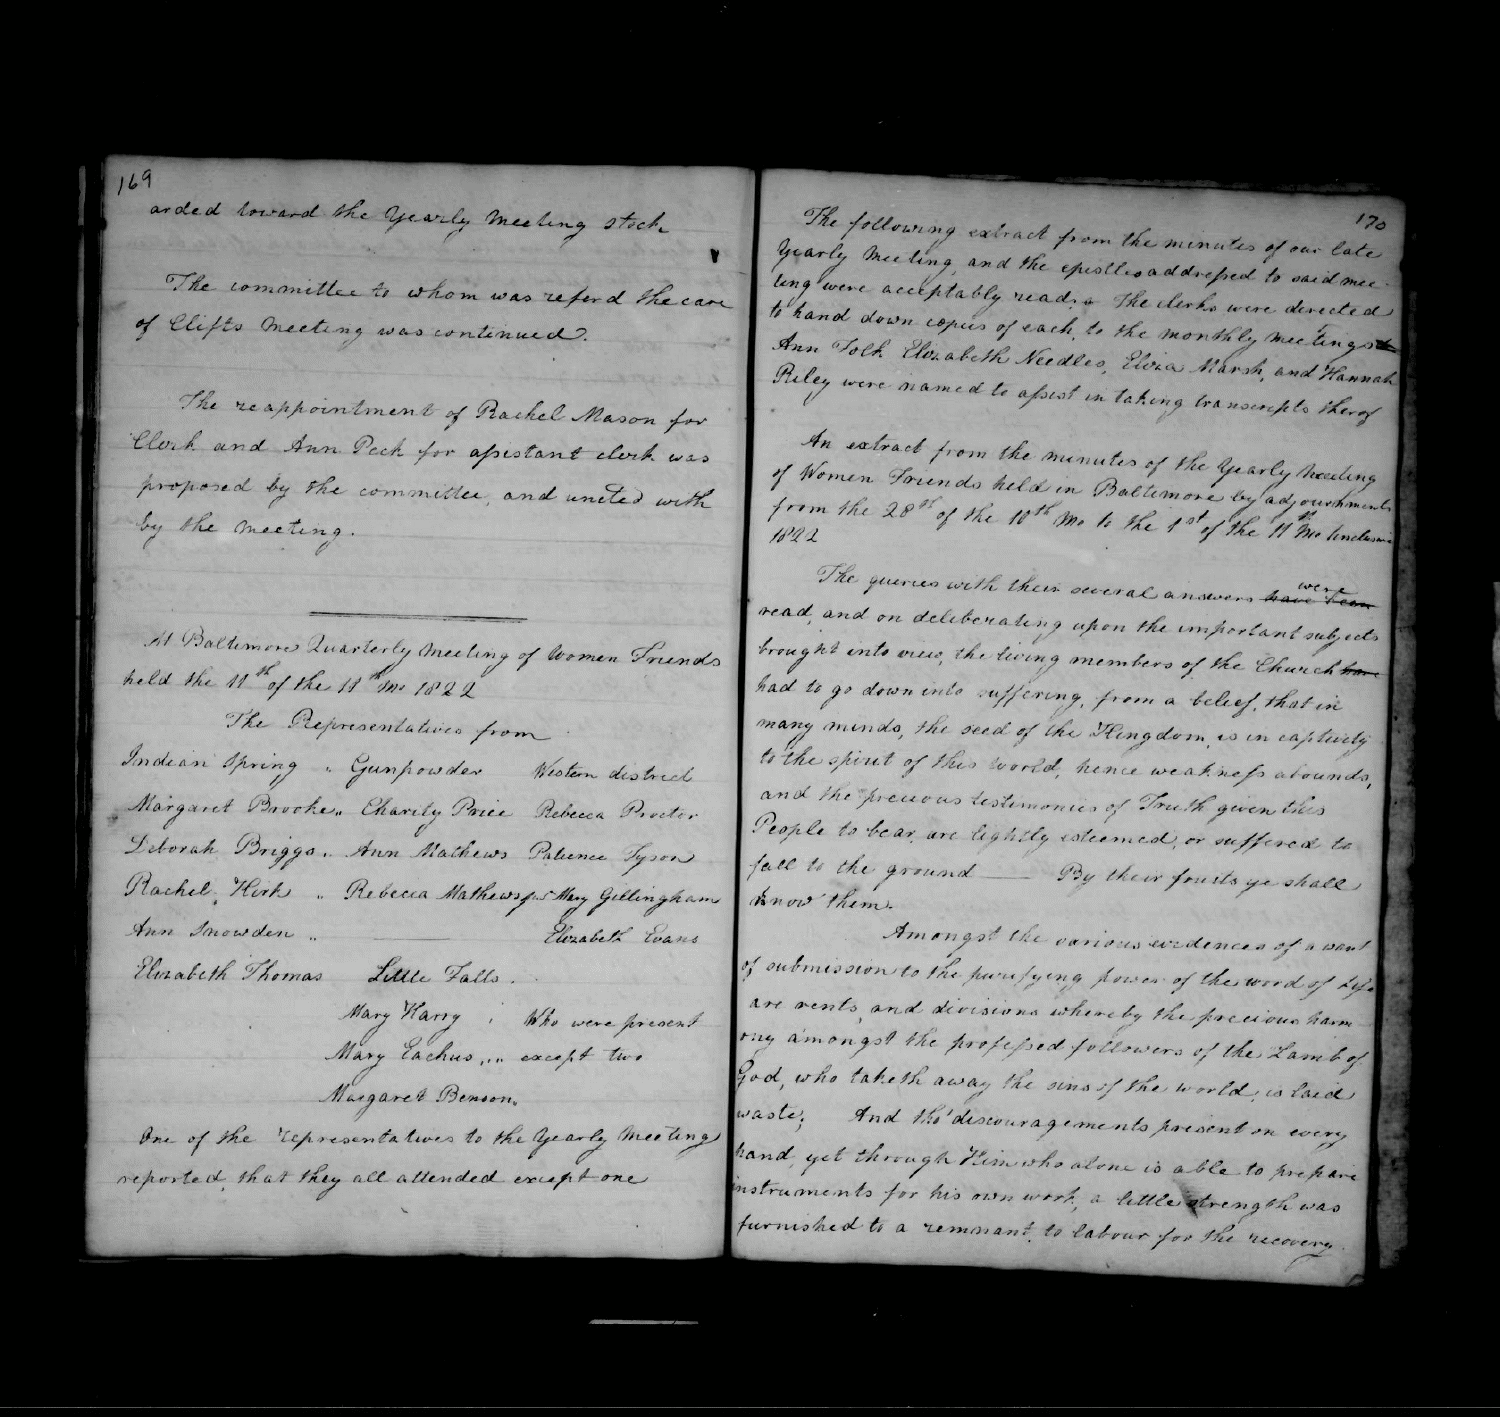 169
arded toward the Yearly Meeting stock
The committee to whom was referd the care
of Clifts Meeting was continued.
The reappointment of Rachel Mason for
Clerk and Ann Peck for assistant clerk was
proposed by the committee, and united with
by the meeting.
At Baltimore Quarterly Meeting of Women Friends
held the 11th of the 11th Mo 1822
The Representatives from
Indian Spring " Gunpowder Western district
Margaret Brooke " Charity Price Rebecca Proctor
Deborah Briggs " Ann Mathews Patience Tyson
Rachel Kirk " Rebecca Mathews jur Mary Gillingham
Ann Snowden " Elizabeth Evans
Elizabeth Thomas Little Falls.
Mary Harry Who were present
Mary Eachus except two
Margaret Benson
One of the representatives to the Yearly Meeting
reported, that they all attended except one
170
The following extract from the minutes of our late
Yearly Meeting, and the epistles addressed to said mee-
ting were acceptably read. The clerks were directed
to hand down copies of each, to the monthly meetings
Ann Polk Elizabeth Needles, Eliza Marsh, and Hannah
Riley were named to assist in taking transcripts therof
An extract from the minutes of the Yearly Meeting
of Women Friends held in Baltimore by adjournments
from the 28th of the 10th Mo to the 1st of the 11th Mo Inclusive
1822
The queries with their several answers have been were
read, and on deliberating upon the important subjects
brought into view, the living members of the Church have
had to go down into suffering, from a belief, that in
many minds, the seed of the Kingdom, is in captivity
to the spirit of this world, hence weakness abounds,
and the precious testimonies of Truth given this
People to bear, are lightly esteemed, or suffered to
fall to the ground — By their fruits ye shall
know them.
Amongst the various evidences of a want
of submission to the purifying power of the word of Life
are rents, and divisions whereby the precious harm-
ony amongst the professed followers of the Lamb of
God, who taketh away the sins of the world, is laid
waste; And tho' discouragements present on every
hand, yet through Him who alone is able to prepare
instruments for his own work, a little strength was
furnished to a remnant, to labour for the recovery